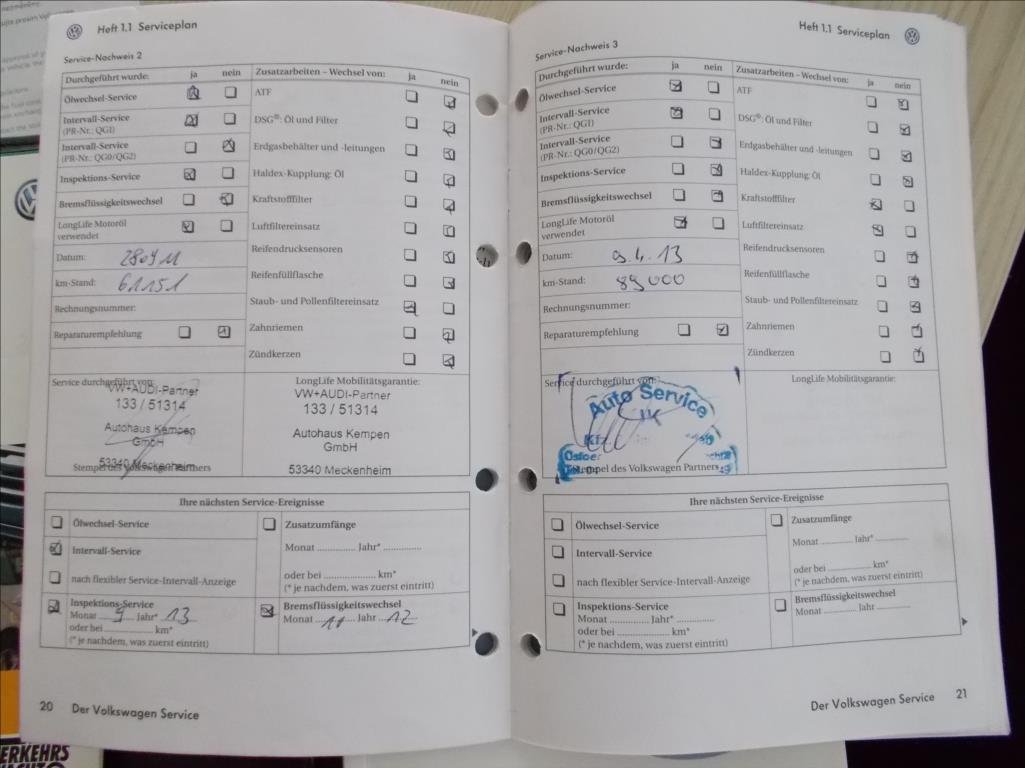 Heft 1.1 Serviceplan
Service-Nachweis 2
Durchgeführt wurde: ja nein
Ölwechsel-Service
Intervall-Service
(PR-Nr.: QG1)
Intervall-Service
(PR-Nr.: QG0/QG2)
Inspektions-Service
Bremsflüssigkeitswechsel
LongLife Motoröl
verwendet
Datum: 280911
km-Stand: 61151
Rechnungsnummer:
Reparaturempfehlung
Zusatzarbeiten – Wechsel von: ja nein
ATF
DSG®: Öl und Filter
Erdgasbehälter und -leitungen
Haldex-Kupplung: Öl
Kraftstofffilter
Luftfiltereinsatz
Reifendrucksensoren
Reifenfüllflasche
Staub- und Pollenfiltereinsatz
Zahnriemen
Zündkerzen
Service durchgeführt von:
VW+AUDI-Partner
133 / 51314
Autohaus Kempen
GmbH
53340 Meckenheim
Stempel des Volkswagen Partners
LongLife Mobilitätsgarantie:
VW+AUDI-Partner
133 / 51314
Autohaus Kempen
GmbH
53340 Meckenheim
Ihre nächsten Service-Ereignisse
Ölwechsel-Service
Intervall-Service
nach flexibler Service-Intervall-Anzeige
Inspektions-Service
Monat 9 Jahr* 13
oder bei .................. km*
(* je nachdem, was zuerst eintritt)
Zusatzumfänge
Monat .............. Jahr* ..............
oder bei .................. km*
(* je nachdem, was zuerst eintritt)
Bremsflüssigkeitswechsel
Monat 11 Jahr 12
20 Der Volkswagen Service
Heft 1.1 Serviceplan
Service-Nachweis 3
Durchgeführt wurde: ja nein
Ölwechsel-Service
Intervall-Service
(PR-Nr.: QG1)
Intervall-Service
(PR-Nr.: QG0/QG2)
Inspektions-Service
Bremsflüssigkeitswechsel
LongLife Motoröl
verwendet
Datum: 9.4.13
km-Stand: 89000
Rechnungsnummer:
Reparaturempfehlung
Zusatzarbeiten – Wechsel von: ja nein
ATF
DSG®: Öl und Filter
Erdgasbehälter und -leitungen
Haldex-Kupplung: Öl
Kraftstofffilter
Luftfiltereinsatz
Reifendrucksensoren
Reifenfüllflasche
Staub- und Pollenfiltereinsatz
Zahnriemen
Zündkerzen
Service durchgeführt von:
Auto Service
Kfz.
Stempel des Volkswagen Partners
LongLife Mobilitätsgarantie:
Ihre nächsten Service-Ereignisse
Ölwechsel-Service
Intervall-Service
nach flexibler Service-Intervall-Anzeige
Inspektions-Service
Monat .............. Jahr* ..............
oder bei .................. km*
(* je nachdem, was zuerst eintritt)
Zusatzumfänge
Monat .............. Jahr* ..............
oder bei .................. km*
(* je nachdem, was zuerst eintritt)
Bremsflüssigkeitswechsel
Monat .............. Jahr ..............
Der Volkswagen Service 21